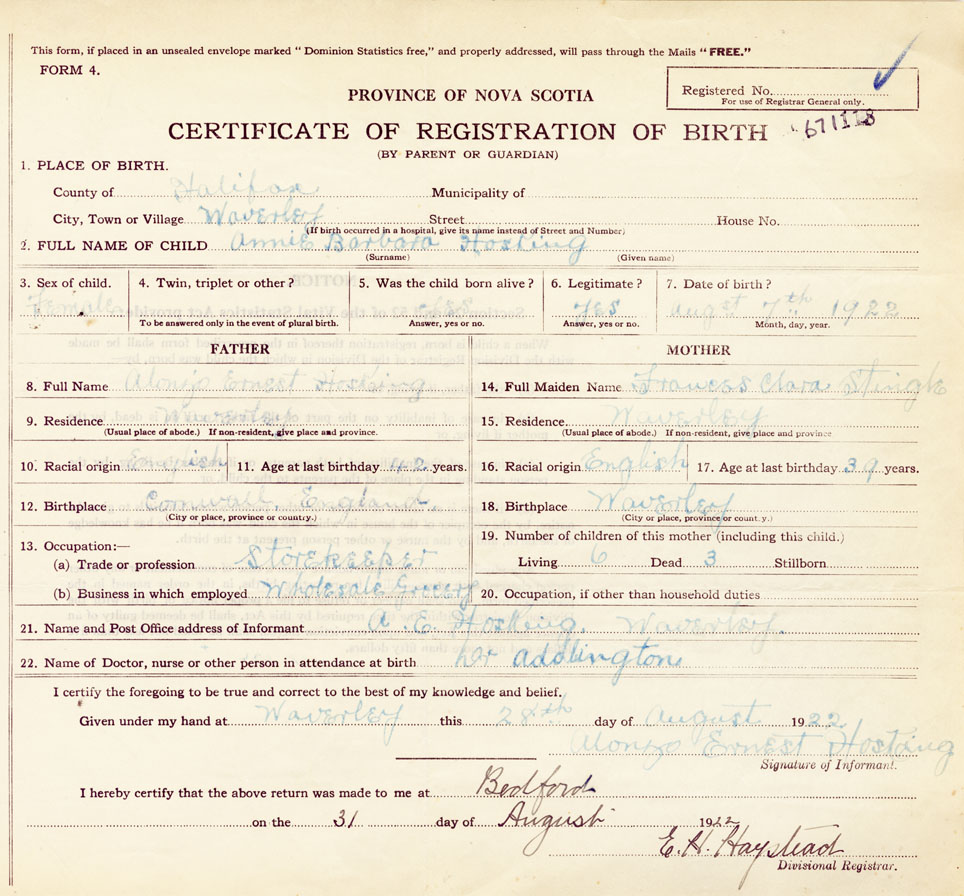 This form, if placed in an unsealed envelope marked “Dominion Statistics free,” and properly addressed, will pass through the Mails “FREE.”
FORM 4.
Registered No.
For use of Registrar General only.
PROVINCE OF NOVA SCOTIA
CERTIFICATE OF REGISTRATION OF BIRTH
(BY PARENT OR GUARDIAN)
1. PLACE OF BIRTH.
County of Halifax Municipality of
City, Town or Village Waverley Street House No.
(If birth occurred in a hospital, give its name instead of Street and Number)
2. FULL NAME OF CHILD Annie Barbara Hosking
(Surname) (Given name)
3. Sex of child. 4. Twin, triplet or other? 5. Was the child born alive? 6. Legitimate? 7. Date of birth?
Female yes yes Augst 7th 1922
To be answered only in the event of plural birth. Answer, yes or no. Answer, yes or no. Month, day, year.
FATHER MOTHER
8. Full Name Alonzo Ernest Hosking 14. Full Maiden Name Frances Clara
9. Residence Waverley 15. Residence Waverley
(Usual place of abode.) If non-resident, give place and province. (Usual place of abode.) If non-resident, give place and province
10. Racial origin English 11. Age at last birthday 42 years. 16. Racial origin English 17. Age at last birthday 39 years.
12. Birthplace Cornwall, England. 18. Birthplace Waverley
(City or place, province or country.) (City or place, province or country.)
13. Occupation:— 19. Number of children of this mother (including this child.)
(a) Trade or profession Storekeeper Living 6 Dead 3 Stillborn
(b) Business in which employed Wholesale Grocery 20. Occupation, if other than household duties
21. Name and Post Office address of Informant A. E. Hosking. Waverley.
22. Name of Doctor, nurse or other person in attendance at birth
I certify the foregoing to be true and correct to the best of my knowledge and belief.
Given under my hand at Waverley this 28th day of August 1922
Alonzo Ernest Hosking
Signature of Informant.
I hereby certify that the above return was made to me at Bedford
on the 31 day of August 1922
E. H. Haystead
Divisional Registrar.